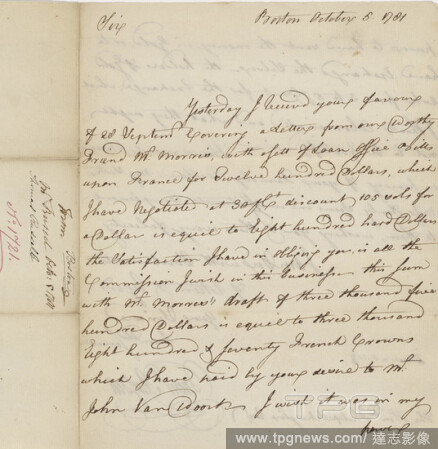 Boston October 5 1781
Sir
Yesterday I receivd your favour
of 28 Septemr Covering a Letter from our Worthy
Friend Mr Morris, with a sett of Loan Office Bills
upon France for Twelve hundred Dollars, which
I have Negotiate at discount 105 sols for
a Dollar is equal to Eight hundred hard Dollars
the Satisfaction I have in obliging you, is all the
Commission I wish in this Business this sum
with Mr Morris's draft of three thousand five
hundred Dollars is equal to three thousand
Eight hundred & Seventy French Crowns
which I have paid by your desire to Mr
John Van I wish it was in my
power
From
Boston
Octr 5 1781
No. 1721.
TPG
www.tpgnews.com | 達志影像